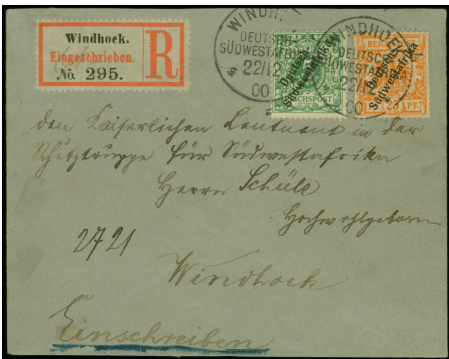 Windhoek.
Eingeschrieben.
No. 295.
R
WINDH
DEUTSCH
SÜDWESTAFRIKA
22/12
00
REICHSPOST
Deutsch-
Südwestafrika
WINDHOEK
DEUTSCH
22/12
00
Deutsch-
Südwestafrika
PF.
den Kaiserlichen Leutnant in der
Schutztruppe für Südwestafrika
Herrn Schüle
Hochwohlgeboren
2721
Windhoek
Einschreiben